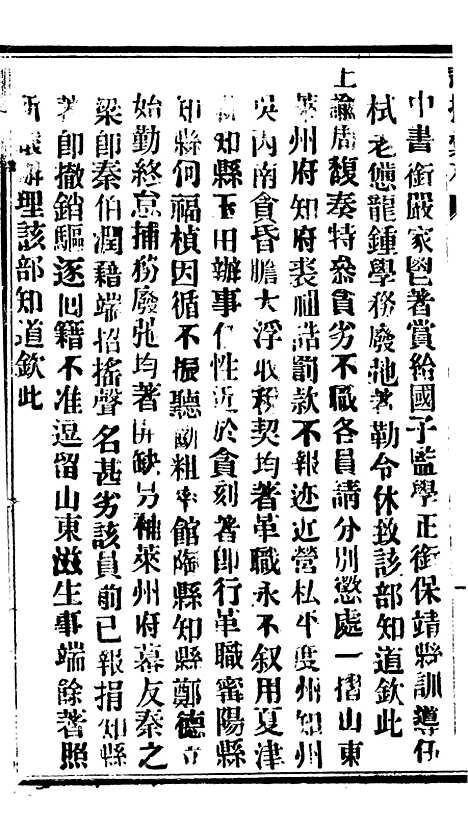 中書銜嚴家鬯著賞給國子監學正銜保靖縣訓導伍
栻老憊龍鍾學務廢弛著勒令休致該部知道欽此
上諭周馥奏特參貪劣不職各員請分別懲處一摺山東
萊州府知府裘祖誥罰款不報迹近營私平度州知州
吳丙南貪昏膽大浮收稅契均著革職永不叙用夏津
縣知縣王田辦事任性近於貪刻著即行革職甯陽縣
知縣何福楨因循不振聽斷粗率館陶縣知縣鄭德立
始勤終怠捕務廢弛均著開缺另補萊州府幕友秦之
梁即秦伯潤藉端招搖聲名甚劣該員前已報捐知縣
著即撤銷驅逐回籍不准逗留山東滋生事端餘著照
所議辦理該部知道欽此